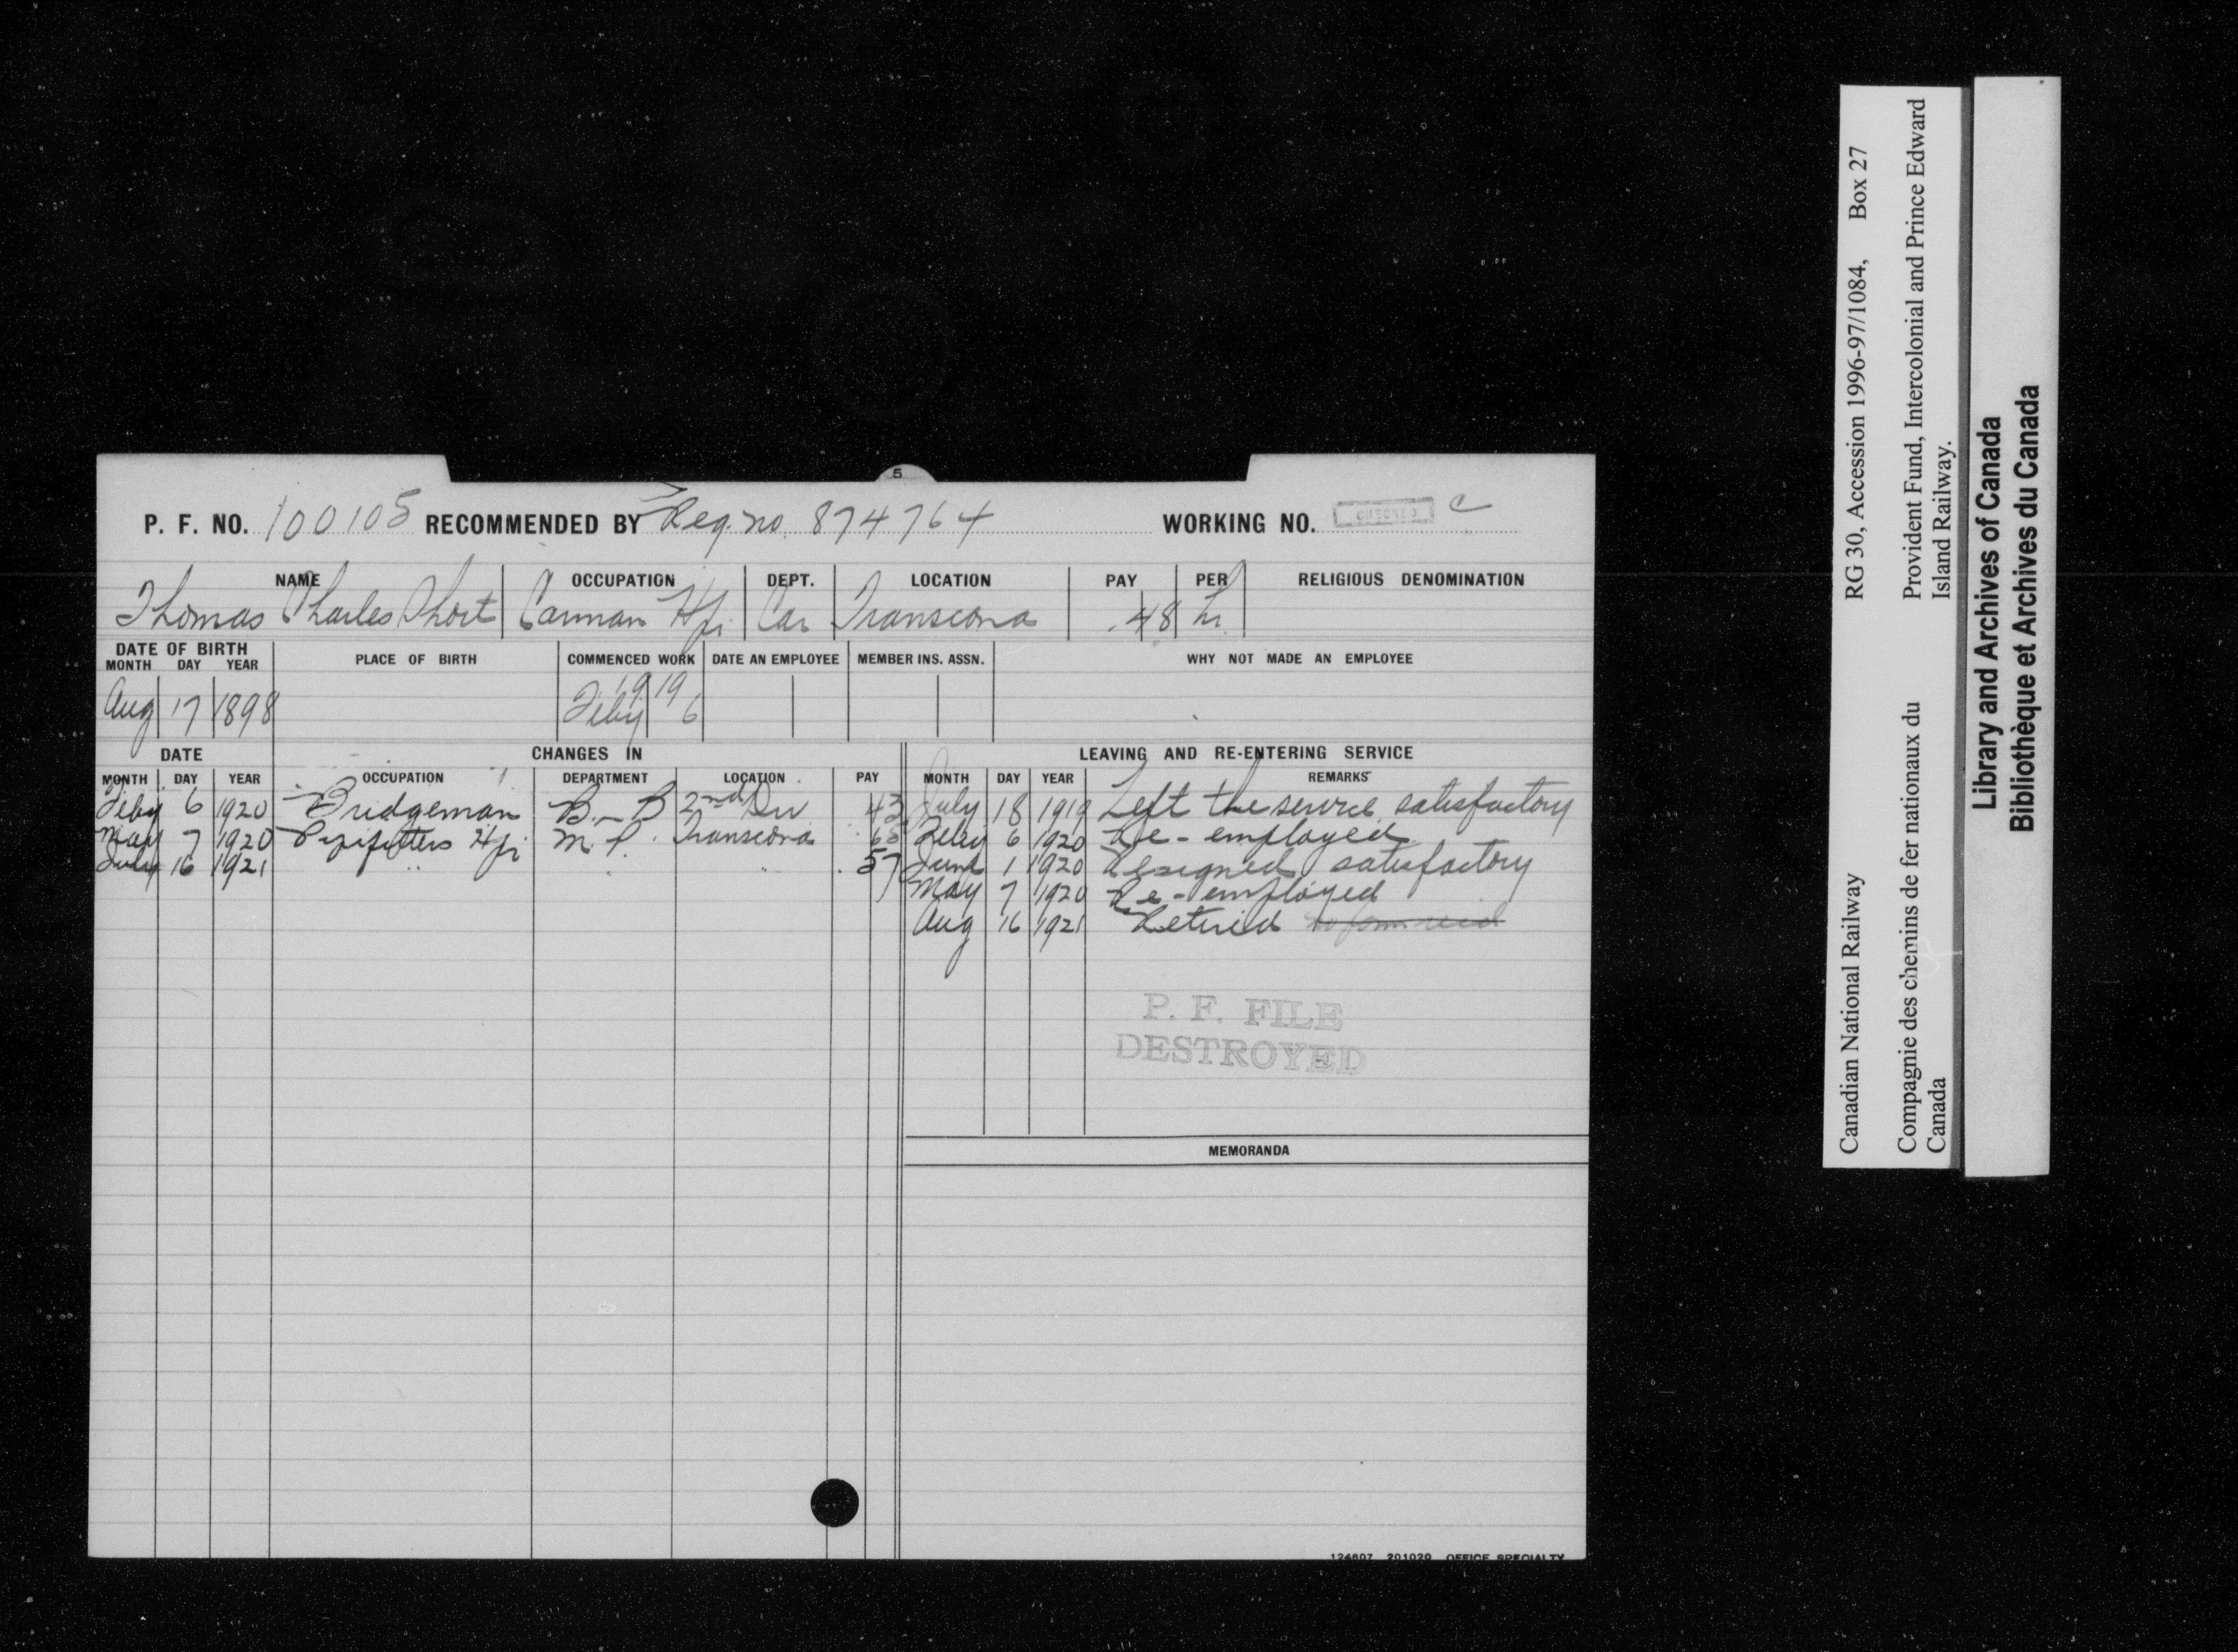 5
P. F. NO. 100105 RECOMMENDED BY Reg. no. 874764 WORKING NO. CHECKED C
NAME OCCUPATION DEPT. LOCATION PAY PER RELIGIOUS DENOMINATION
Thomas Charles Short Carman Hpr Car Transcona .48 hr
DATE OF BIRTH
MONTH DAY YEAR PLACE OF BIRTH COMMENCED WORK DATE AN EMPLOYEE MEMBER INS. ASSN. WHY NOT MADE AN EMPLOYEE
1919
Aug 17 1898 Feby 6
DATE CHANGES IN LEAVING AND RE-ENTERING SERVICE
MONTH DAY YEAR OCCUPATION DEPARTMENT LOCATION PAY MONTH DAY YEAR REMARKS
Feby 6 1920 Bridgeman B. - B 2nd Div 43 July 18 1919 Left the service satisfactory
May 7 1920 Pipefitters Hpr M. P. Transcona 68 Feby 6 1920 Re-employed
July 16 1921 " " " .57 June 1 1920 Resigned satisfactory
May 7 1920 Re-employed
Aug 16 1921 Retired
P. F. FILE
DESTROYED
MEMORANDA
124607 201020 OFFICE SPECIALTY
Canadian National Railway RG 30, Accession 1996-97/1084, Box 27
Compagnie des chemins de fer nationaux du Canada
Provident Fund, Intercolonial and Prince Edward
Island Railway.
Library and Archives of Canada
Bibliothèque et Archives du Canada